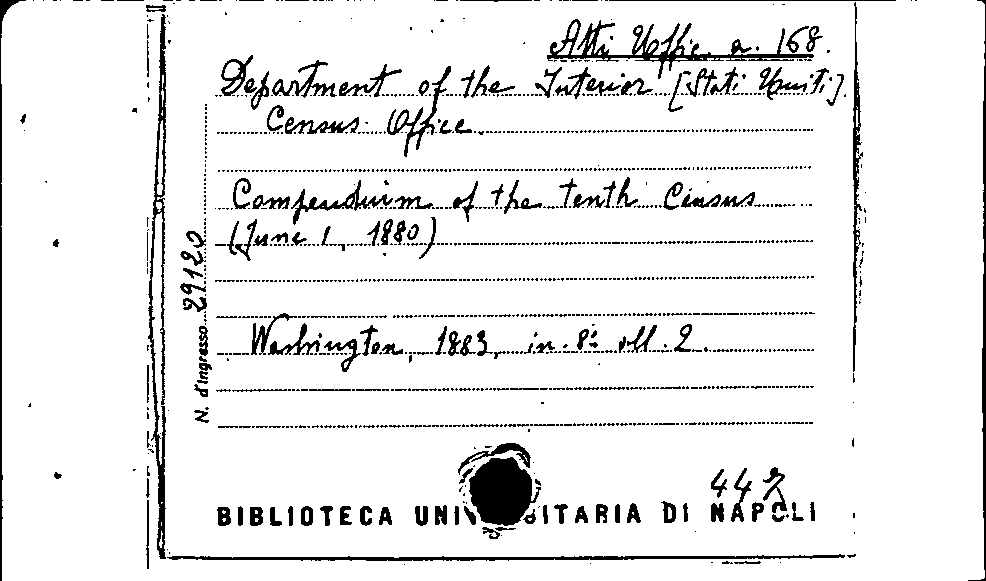 Atti Uffic. a. 168.
Department of the Interior [Stati Uniti].
Census Office.
Compendium of the tenth Census
(June 1, 1880)
N. d'Ingresso 29120
Washington, 1883, in-8º: voll. 2.
BIBLIOTECA UNIV SITARIA DI NAPOLI